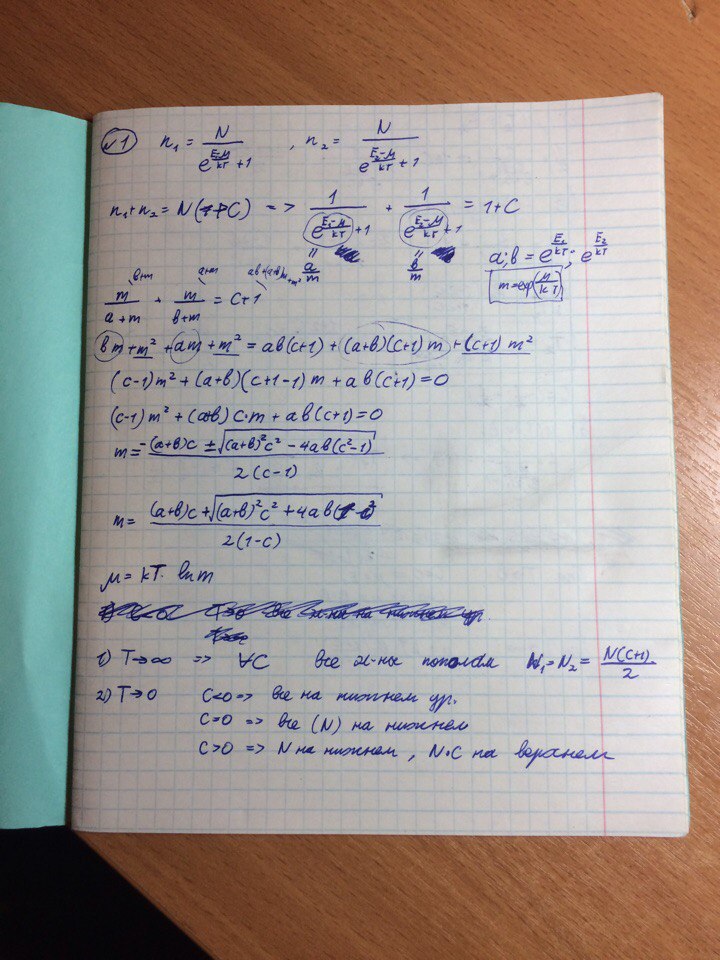 №1 n₁ = N/(e^((E₁-μ)/kT) + 1) , n₂ = N/(e^((E₂-μ)/kT) + 1)
n₁ + n₂ = N(1+C) => 1/(e^((E₁-μ)/kT) + 1) + 1/(e^((E₂-μ)/kT) + 1) = 1 + C
a/m b/m a; b = e^(E₁/kT); e^(E₂/kT)
m = exp(μ/kT)
b+m a+m ab+(a+b)m+m²
m/(a+m) + m/(b+m) = C+1
bm + m² + am + m² = ab(c+1) + (a+b)(c+1)m + (c+1)m²
(c-1)m² + (a+b)(c+1-1)m + ab(c+1) = 0
(c-1)m² + (a+b)c·m + ab(c+1) = 0
m = (-(a+b)c ± √((a+b)²c² - 4ab(c²-1)))/(2(c-1))
m = ((a+b)c + √((a+b)²c² + 4ab(1-c²)))/(2(1-c))
μ = kT·ln m
1) T→∞ => ∀C все эл-ны пополам N₁ = N₂ = N(C+1)/2
2) T→0 C<0 => все на нижнем ур.
C=0 => все (N) на нижнем
C>0 => N на нижнем, N·C на верхнем